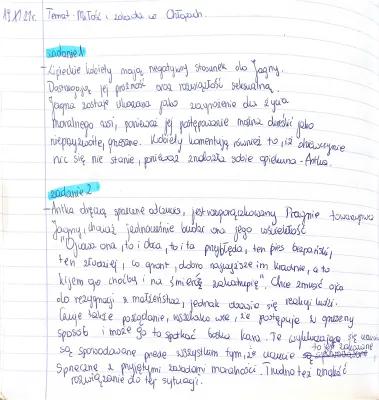 19.XI.21r. Temat: Miłość i zdrada w Chłopach.
zadanie 1
- Lipeckie kobiety mają negatywny stosunek do Jagny.
Dostrzegają jej próżność oraz rozwiązłość seksualną.
Jagna zostaje ukazana jako zagrożenie dla życia
moralnego wsi, ponieważ jej postępowanie można określić jako
nieprzyzwoite, grzeszne. Kobiety komentują również to, iż dziewczynie
nic się nie stanie, ponieważ znalazła sobie opiekuna - Antka.
zadanie 2
- Antka dręczą sprzeczne odczucia, jest rozporządkowany Pragnie towarzystwa
Jagny, chociaż jednocześnie budzi ona jego wściekłość
"Ojcowa ona, to i dbca, to i ta przybłęda, ten pies bezpański,
ten złodziej, co grunt, dobro najwyższe im kradnie, a to
kijem go choćby i na śmierć zakatrupię". Chce zmusić ojca
do rezygnacji z małżeństwa, jednak obawia się reakcji ludzi.
Czuje także pożądanie, wszelako wie, że postępuje w grzeszny
sposób i może go to spotkać boska kara. Te wykluczające się uczucia
są spowodowane przede wszystkim tym, że uczucie to jest zakazane
sprzeczne z przyjętymi zasadami moralności. Trudno też znaleźć
rozwiązanie do tej sytuacji.